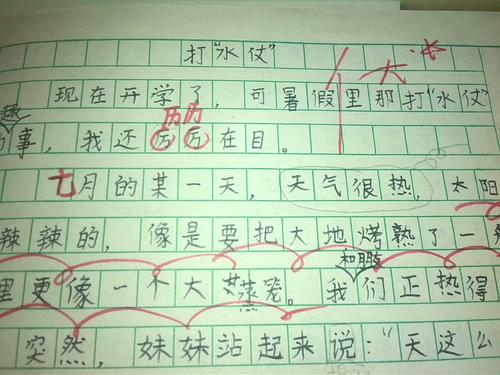 打“水仗”
现在开学了，可暑假里那打“水仗”
趣
历历
的事，我还厉厉在目。
七月的某一天，天气很热，太阳
辣辣的，像是要把大地烤熟了一
里更像一个大蒸笼。我们正热得
突然，妹妹站起来说：“天这么